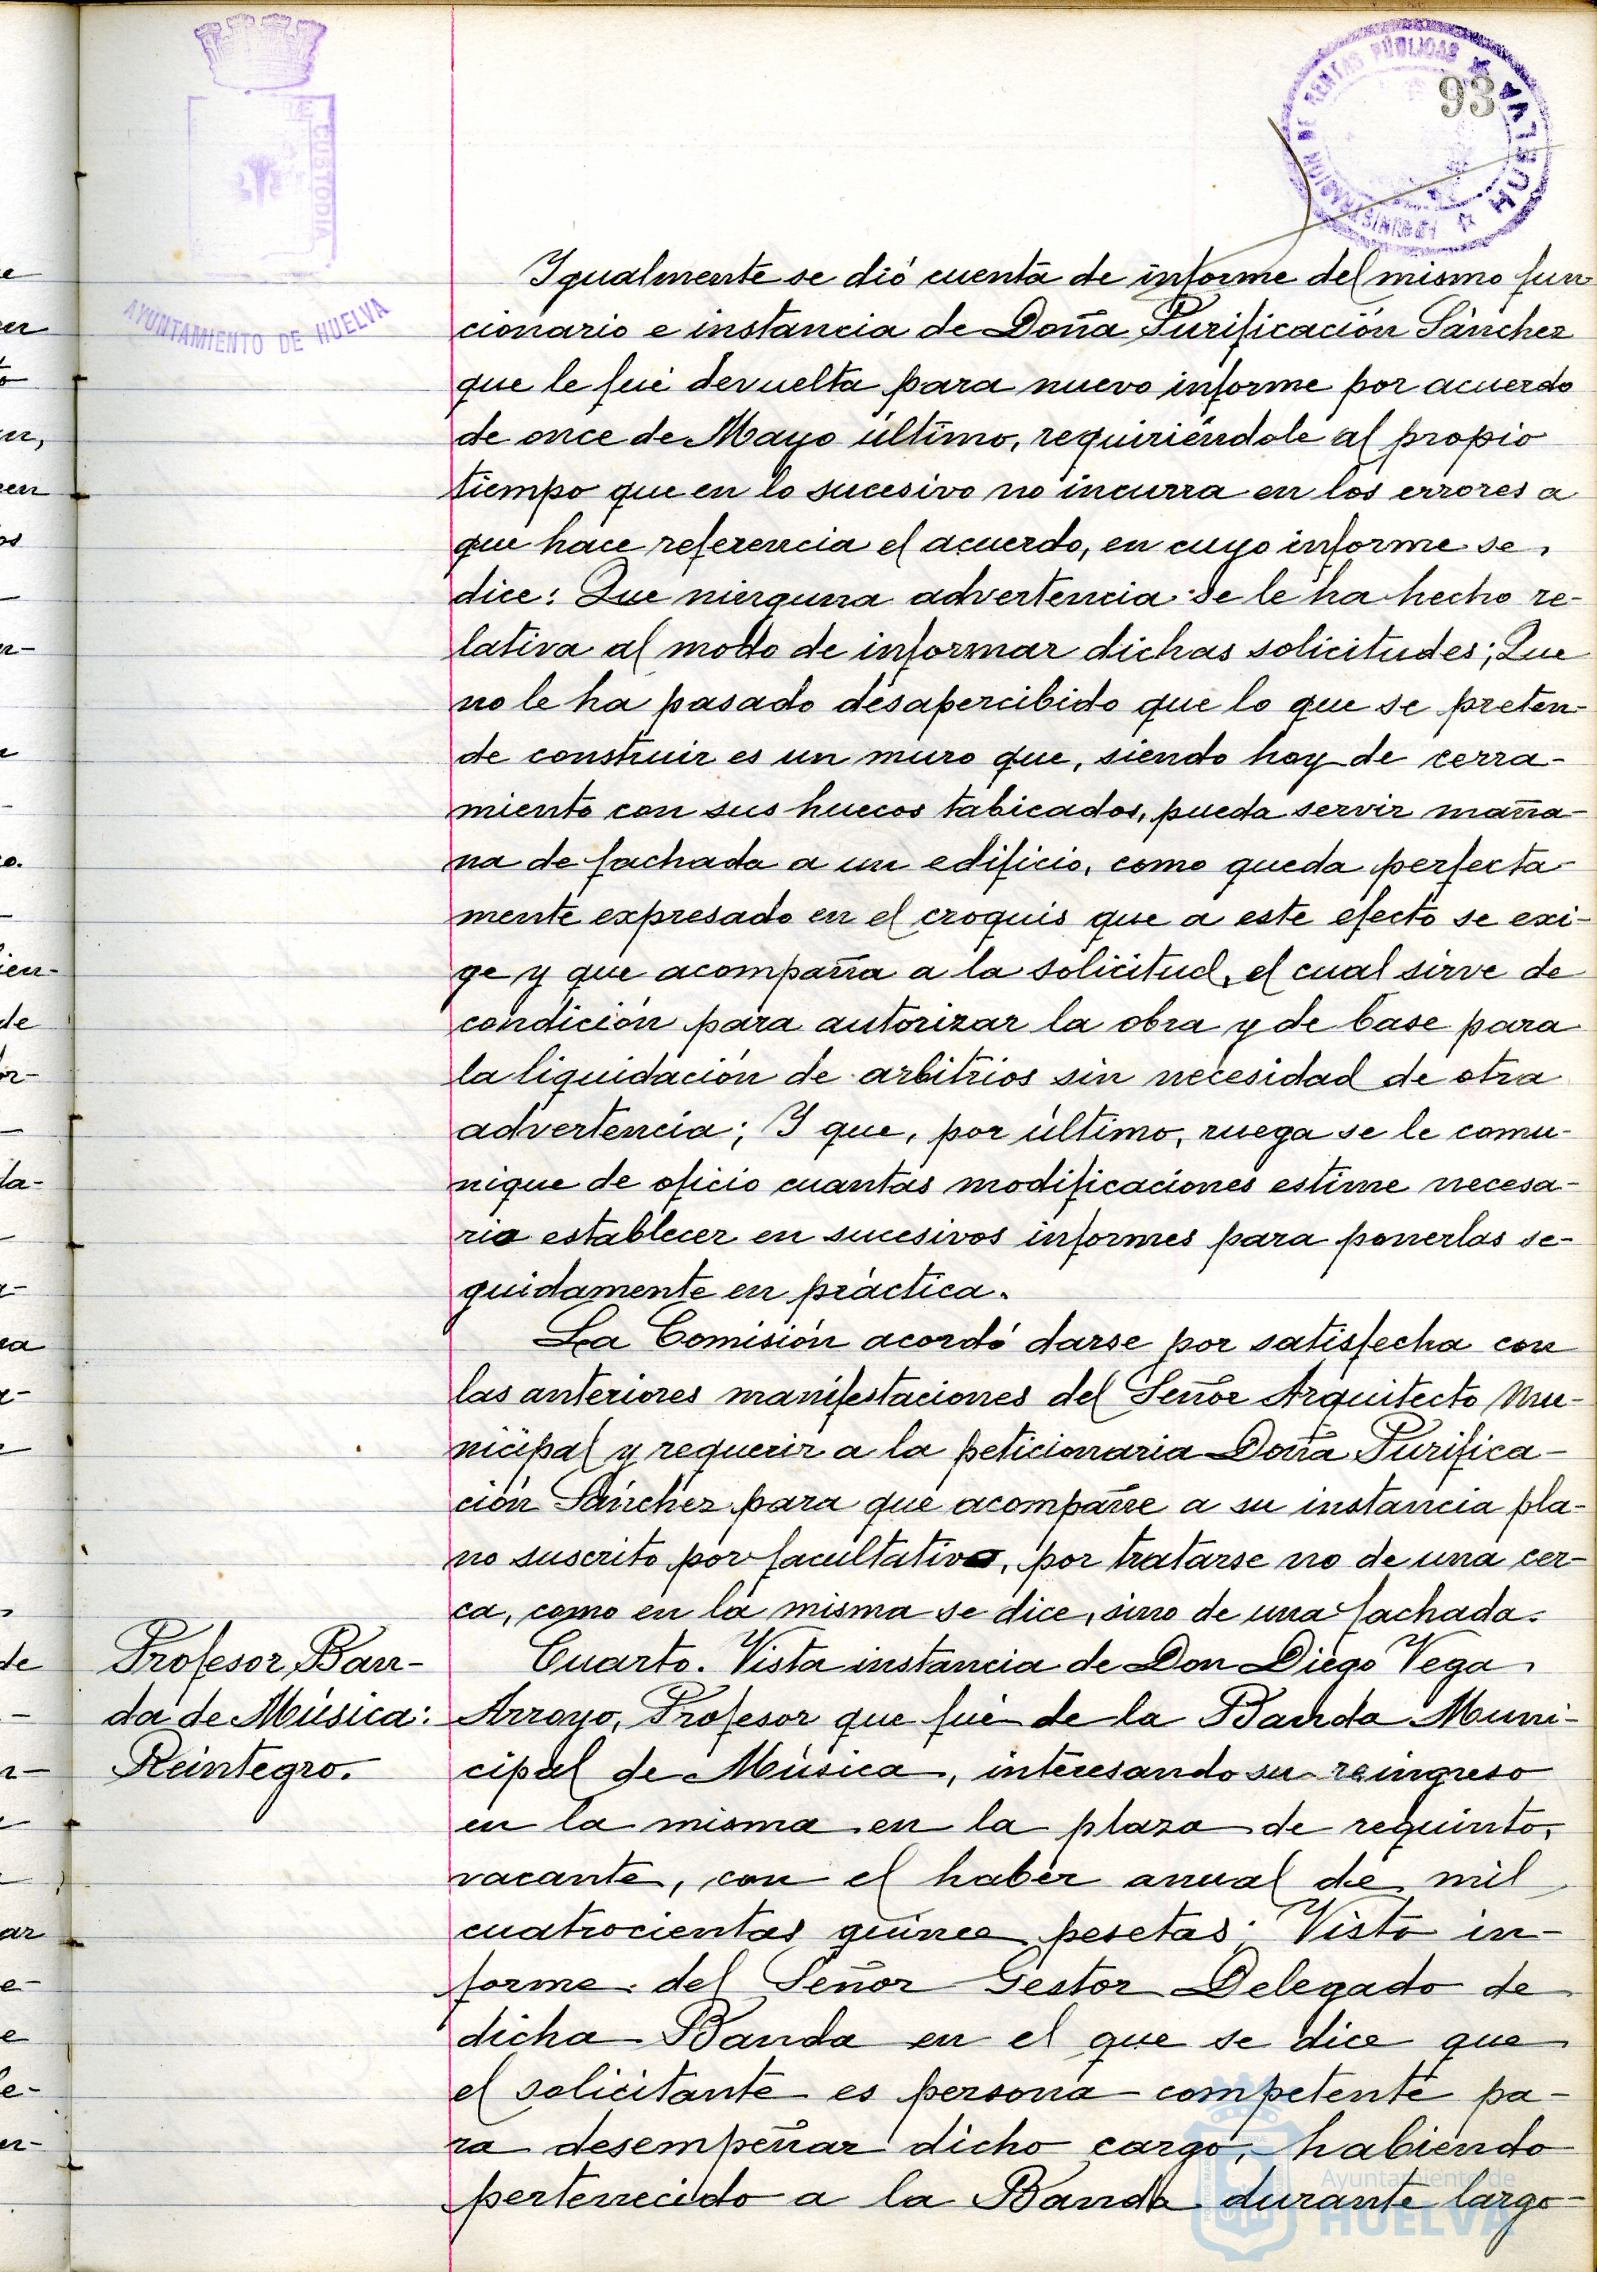 93
ADMINISTRACIÓN DE RENTAS PÚBLICAS
HUELVA
CUSTODIA
AYUNTAMIENTO DE HUELVA
Igualmente se dió cuenta de informe del mismo fun-
cionario e instancia de Doña Purificación Sánchez
que le fué devuelta para nuevo informe por acuerdo
de once de Mayo último, requiriéndole al propio
tiempo que en lo sucesivo no incurra en los errores a
que hace referencia el acuerdo, en cuyo informe se
dice: Que ninguna advertencia se le ha hecho re-
lativa al modo de informar dichas solicitudes; Que
no le ha pasado desapercibido que lo que se preten-
de construir es un muro que, siendo hoy de cerra-
miento con sus huecos tabicados, pueda servir maña-
na de fachada a un edificio, como queda perfecta-
mente expresado en el croquis que a este efecto se exi-
ge y que acompaña a la solicitud, el cual sirve de
condición para autorizar la obra y de base para
la liquidación de arbitrios sin necesidad de otra
advertencia; Y que, por último, ruega se le comu-
nique de oficio cuantas modificaciones estime necesa-
rio establecer en sucesivos informes para ponerlas se-
guidamente en práctica.
La Comisión acordó darse por satisfecha con
las anteriores manifestaciones del Señor Arquitecto Mu-
nicipal y requerir a la peticionaria Doña Purifica-
ción Sánchez para que acompañe a su instancia pla-
no suscrito por facultativo, por tratarse no de una cer-
ca, como en la misma se dice, sino de una fachada.
Profesor Ban-
da de Música:
Reintegro.
Cuarto. Vista instancia de Don Diego Vega
Arroyo, Profesor que fué de la Banda Muni-
cipal de Música, interesando su reingreso
en la misma en la plaza de requinto,
vacante, con el haber anual de mil
cuatrocientas quince pesetas; Visto in-
forme del Señor Gestor Delegado de
dicha Banda en el que se dice que
el solicitante es persona competente pa-
ra desempeñar dicho cargo, habiendo
pertenecido a la Banda durante largo
Ayuntamiento de
HUELVA